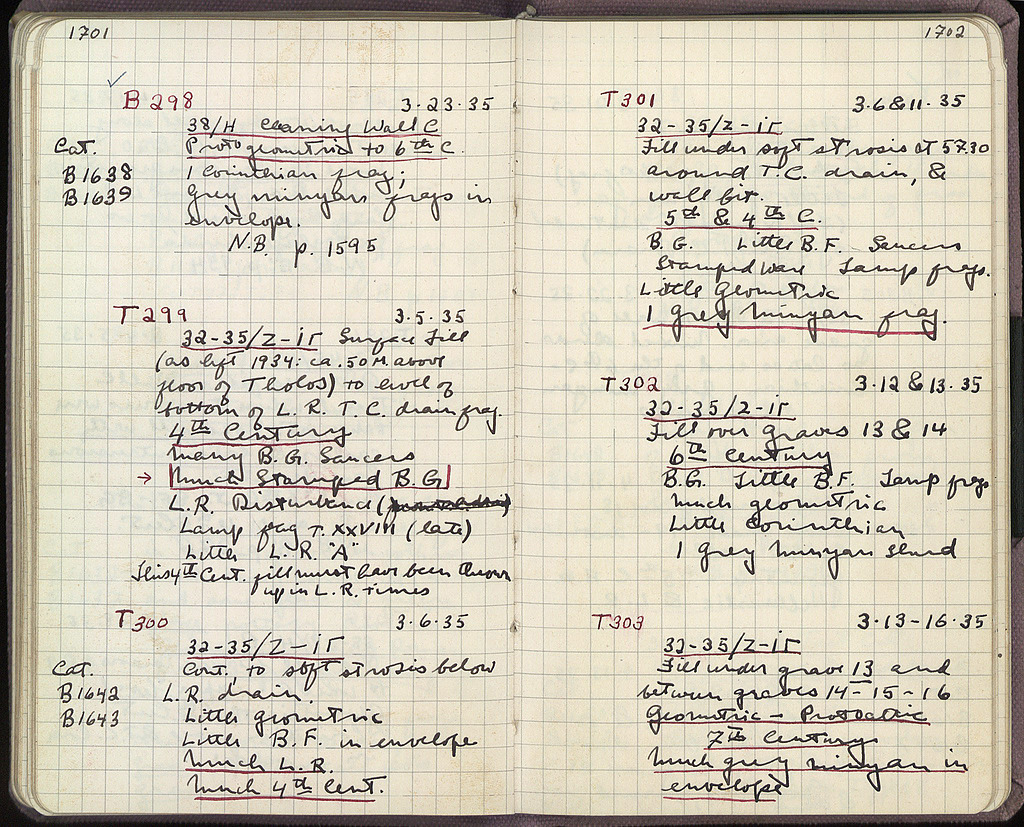 1701
B 298 3·23·35
38/H Cleaning Wall C
Protogeometric to 6th C.
Cat.
B1638 1 Corinthian frag;
B1639 Grey minyan frags in
envelope.
N.B. p. 1595
T 299 3·5·35
32-35/Z-ir Surface Fill
(as left 1934: ca .50 M. above
floor of Tholos) to level of
bottom of L. R. T. C. drain frag.
4th Century
many B.G. Saucers
→ much Stamped B.G
L.R. Disturbance
Lamp frag T. XXVIII (late)
Little L. R. "A"
This 4th Cent. fill must have been thrown
up in L.R. times
T300 3·6·35
32-35/Z-ir
Cat. Cont. to soft strosis below
B1642 L.R. drain.
B1643 Little geometric
Little B.F. in envelope
much L.R.
much 4th Cent.
1702
T301 3·6&11·35
32-35/Z-ir
Fill under soft strosis at 57.30
around T.C. drain, &
wall bit.
5th & 4th C.
B.G. Little B.F. Saucers
Stamped ware Lamp frags.
Little Geometric
1 grey minyan frag.
T302 3·12 & 13·35
32-35/Z-ir
Fill over graves 13 & 14
6th Century
B.G. Little B.F. Lamp frags
much geometric
Little Corinthian
1 grey minyan sherd
T303 3·13-16·35
32-35/Z-ir
Fill under grave 13 and
between graves 14-15-16
Geometric - Protoattic
7th Century
much grey minyan in
envelope